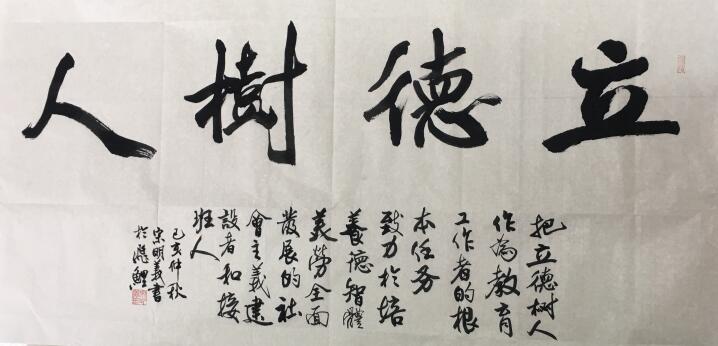 立德樹人
把立德树人
作為教育
工作者的根
本任务
致力於培
養德智體
美勞全面
發展的社
會主義建
設者和接
班人
己亥仲秋
宋明義書
於